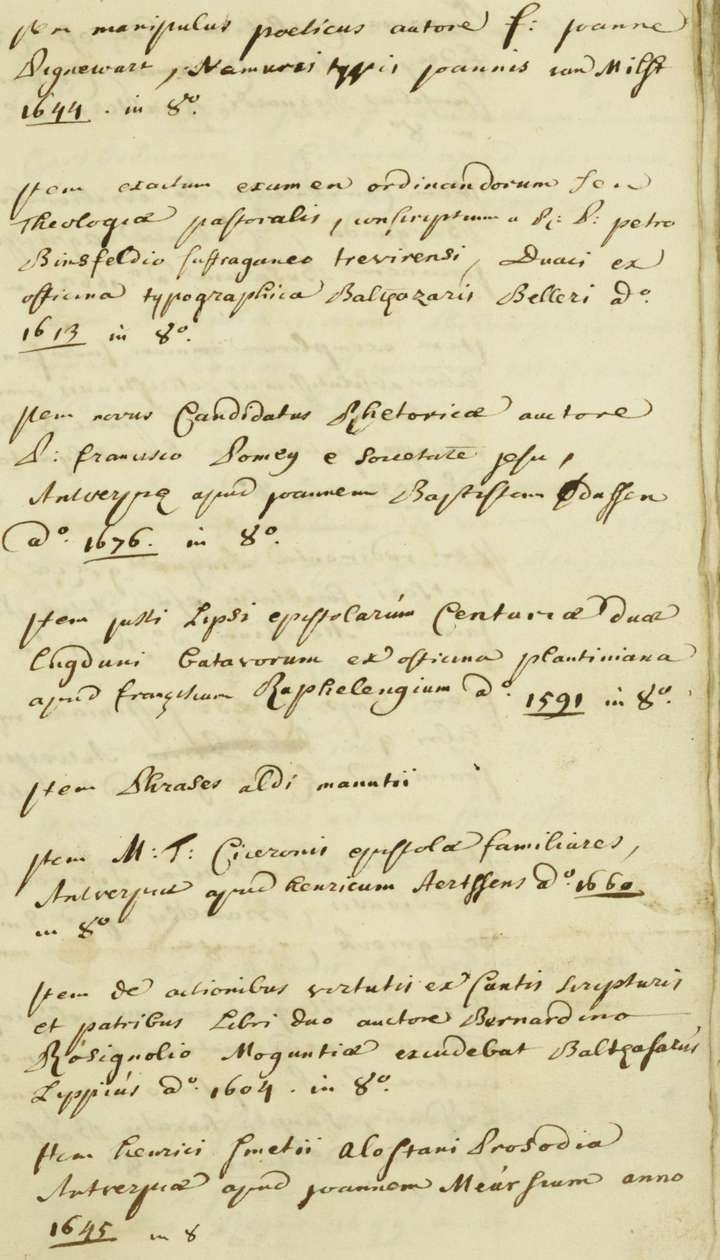 Item manipulus poeticus autore f: joanne
Pignewart, Namurci typis joannis van Milst
1644 . in 8º.
Item exactum examen ordinandorum seu
Theologiæ pastoralis, conscriptum a R: P: petro
Binsfeldio suffraganeo trevirensi, Duaci ex
officina typographica Baltazaris Belleri aº.
1613 in 8º.
Item novus Candidatus Rhetoricæ auctore
P: francisco Pomey e societate jesu,
Antverpiæ apud joannem Baptistam
aº. 1676. in 8º.
Item justi Lipsi epistolarúm Centuriæ duæ
lugduni batavorum ex officina plantiniana
apud franciscum Raphelengium aº. 1591 in 8º.
Item Phrases aldi manutii
Item M: T: Ciceronis epistolæ familiares,
Antverpiæ apud henricum Aertssens aº. 1660
in 8º
Item de actionibus virtutis ex Santis scripturis
et patribus Libri duo auctore Bernardino
Rósignolio Moguntiæ excudebat Baltasarús
Lyppiús aº. 1604 . in 8º.
Item henrici smetii alostani Prosodia
Antverpiæ apud joannem Meúrsium anno
1645 in 8